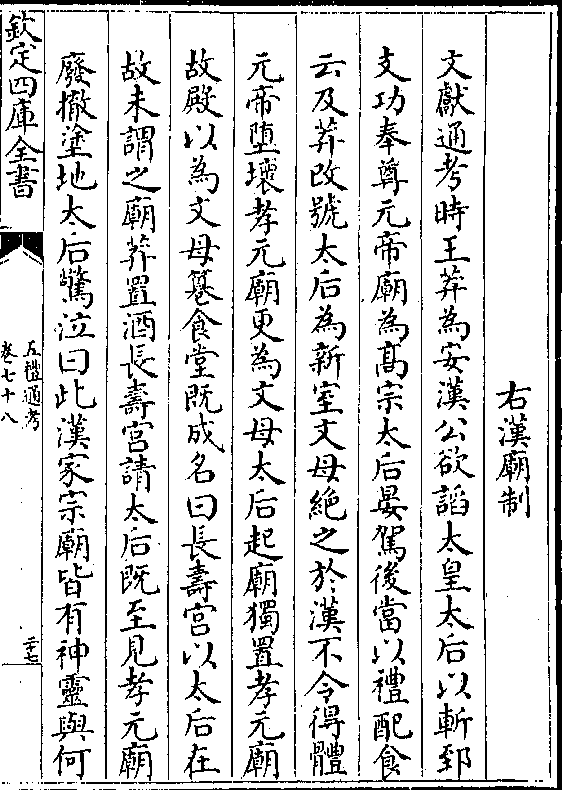 右漢廟制
文獻通考時王莽為安漢公欲謟太皇太后以斬郅
支功奉尊元帝廟為髙宗太后晏駕後當以禮配食
云及莽改號太后為新室文母絶之於漢不令得體
元帝墮壞孝元廟更為文母太后起廟獨置孝元廟
故殿以為文母篹食堂既成名曰長壽宮以太后在
故未謂之廟莽置酒長壽宮請太后既至見孝元廟
廢撤塗地太后驚泣曰此漢家宗廟皆有神靈與何
欽定四庫全書
五禮通考
卷七十八
二十七